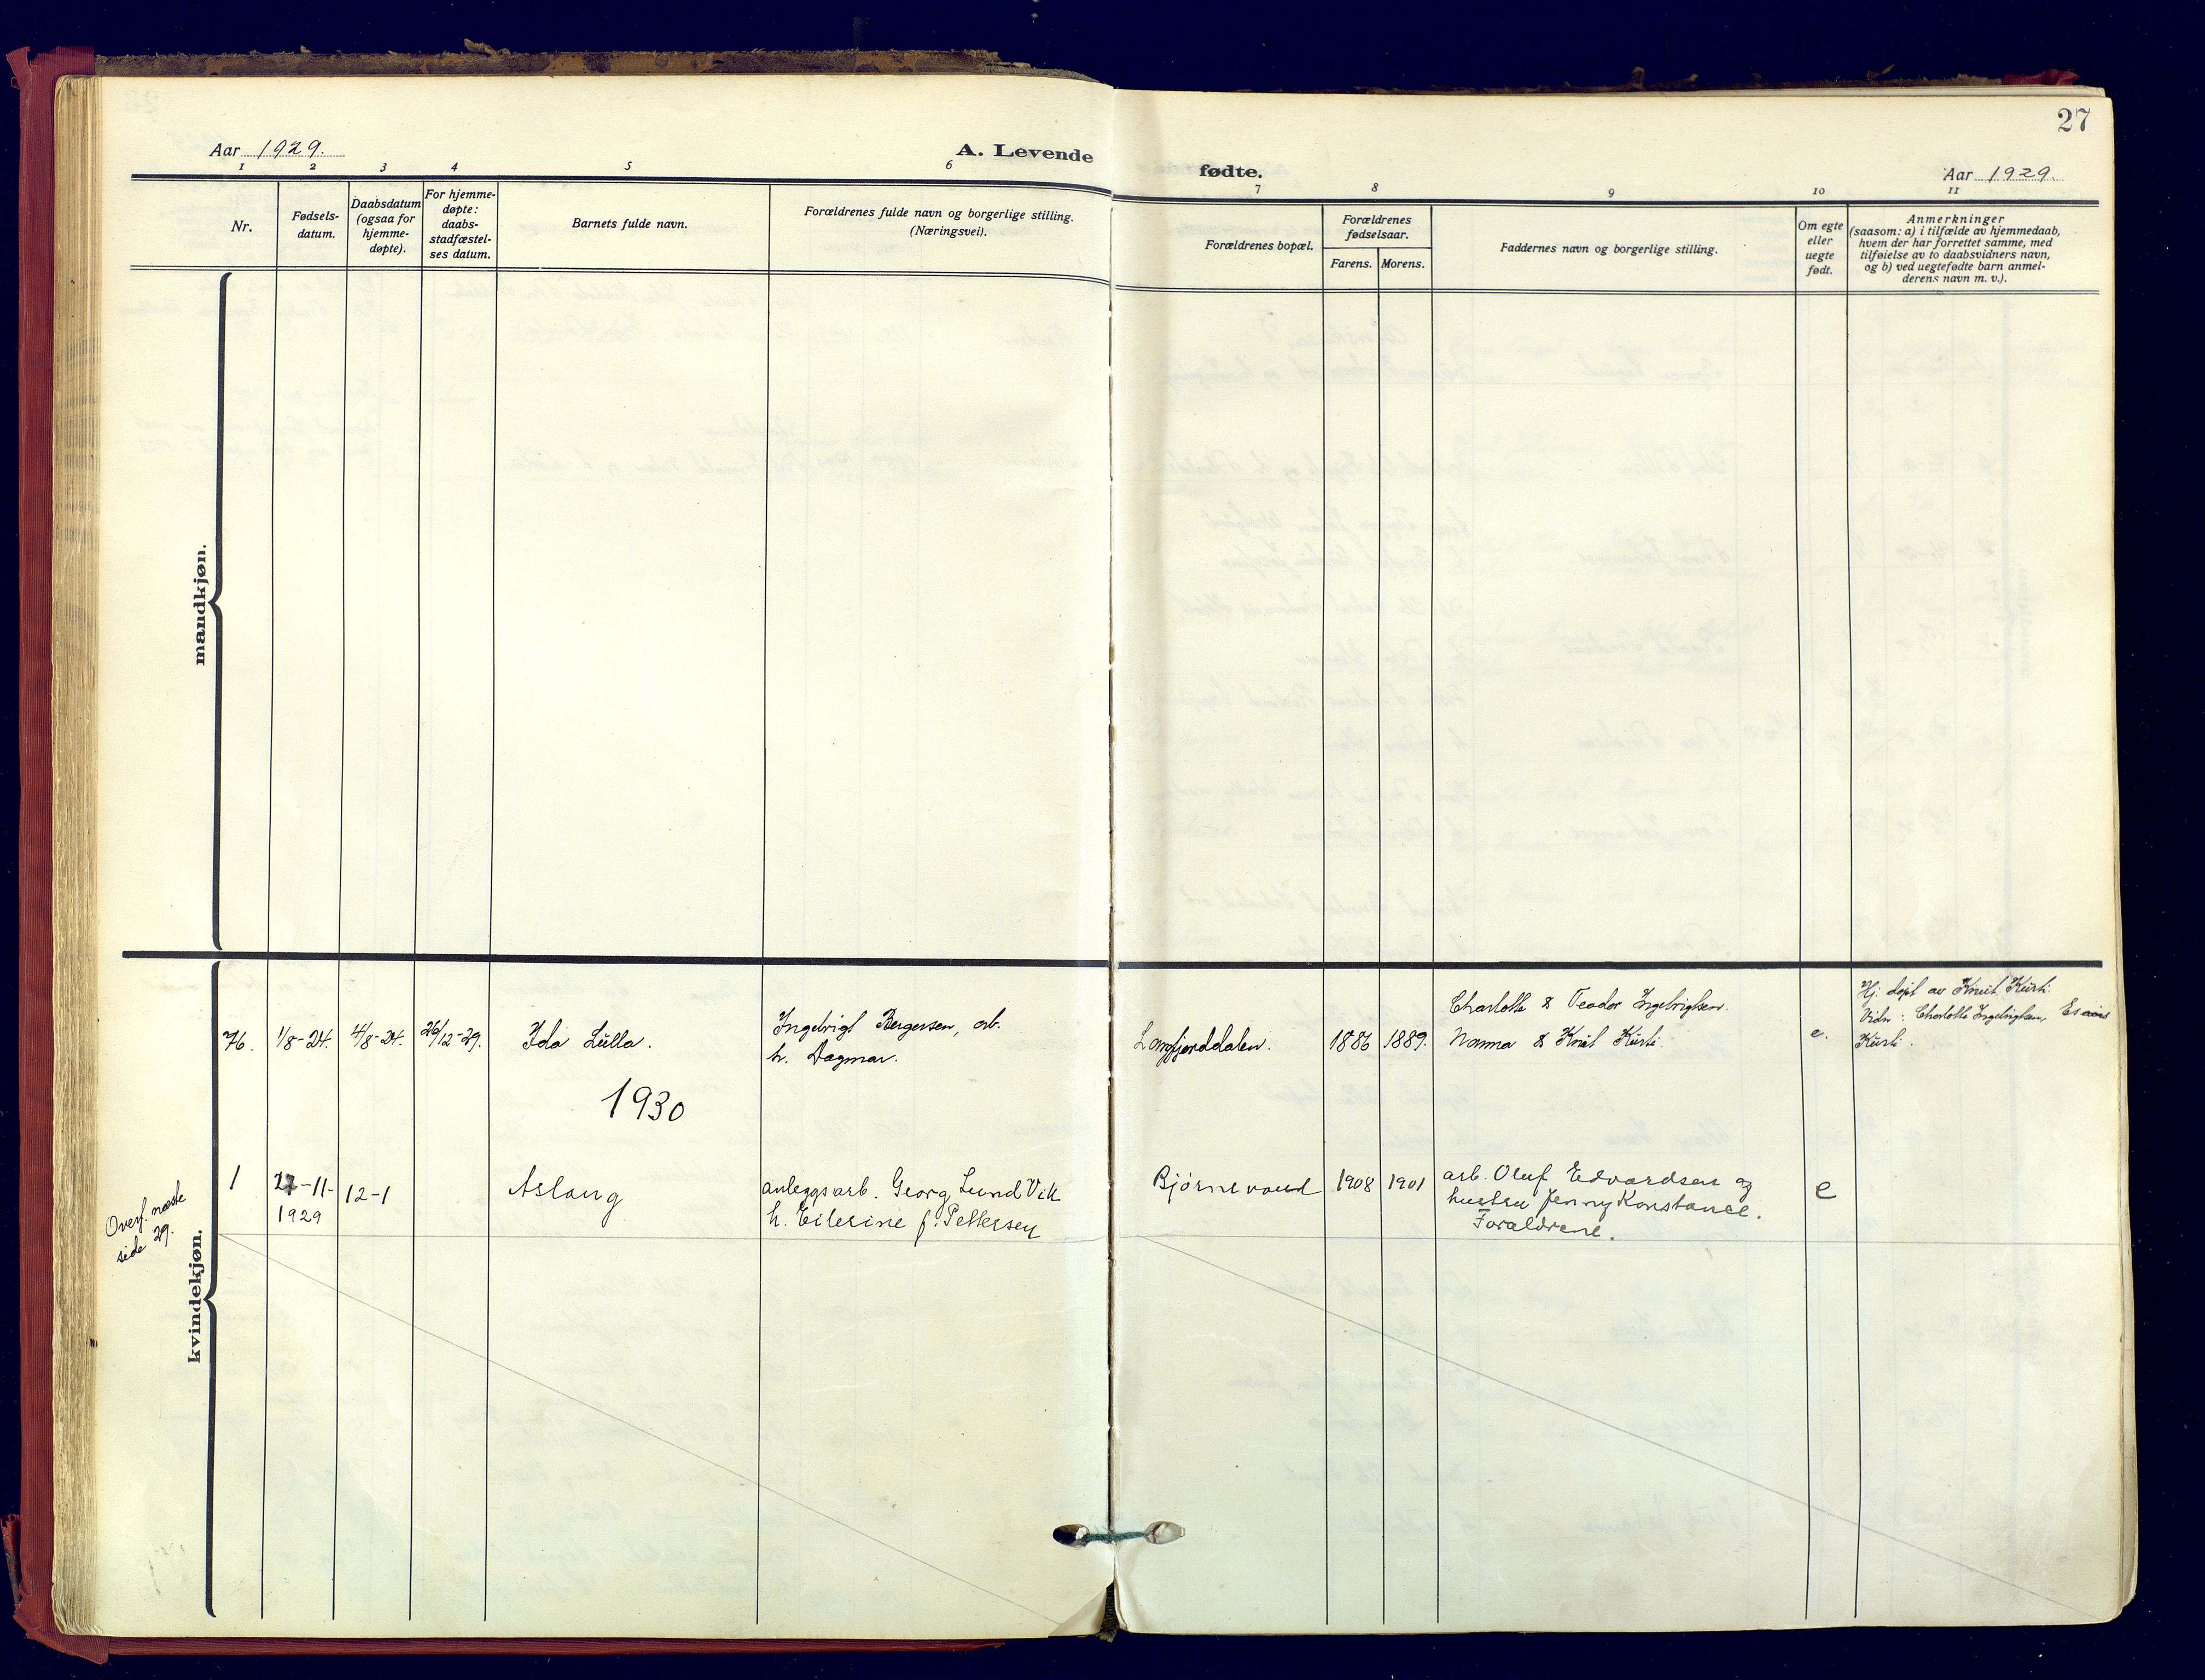 27
Aar 1929.
A. Levende
fødte.
Aar 1929.
1 2 3 4 5 6
7 8 9 10 11
Nr.
Fødsels-
datum.
Daabsdatum
(ogsaa for
hjemme-
døpte).
For hjemme-
døpte:
daabs-
stadfæstel-
ses datum.
Barnets fulde navn.
Forældrenes fulde navn og borgerlige stilling.
(Næringsvei).
Forældrenes bopæl.
Forældrenes
fødselsaar.
Farens. Morens.
Faddernes navn og borgerlige stilling.
Om egte
eller
uegte
født.
Anmerkninger
(saasom: a) i tilfælde av hjemmedaab,
hvem der har forrettet samme, med
tilføielse av to daabsvidners navn,
og b) ved uegtefødte barn anmel-
derens navn m. v.).
mandkjøn.
kvindekjøn.
76.
1/8-24.
4/8-24.
26/12-29.
Ida Lulla.
Ingebrigt Bergersen, arb.
h. Dagmar.
Langfjorddalen.
1886
1889.
Charlotte & Teodor Ingebrigtsen.
Nanna & Knut Kurti.
e.
Hj. døpt av Knut Kurti.
Vidn: Charlotte Ingebrigtsen, Esaias
Kurti.
1930
1
27-11-
1929
12-1
Aslaug
anleggsarb. Georg Lund Vik
h. Eilesine f. Pettersen
Bjørnevand
1908
1901
arb. Oluf Edvardsen og
hustru Jenny Konstance.
Forældrene.
e
Overf. næste
side 29.